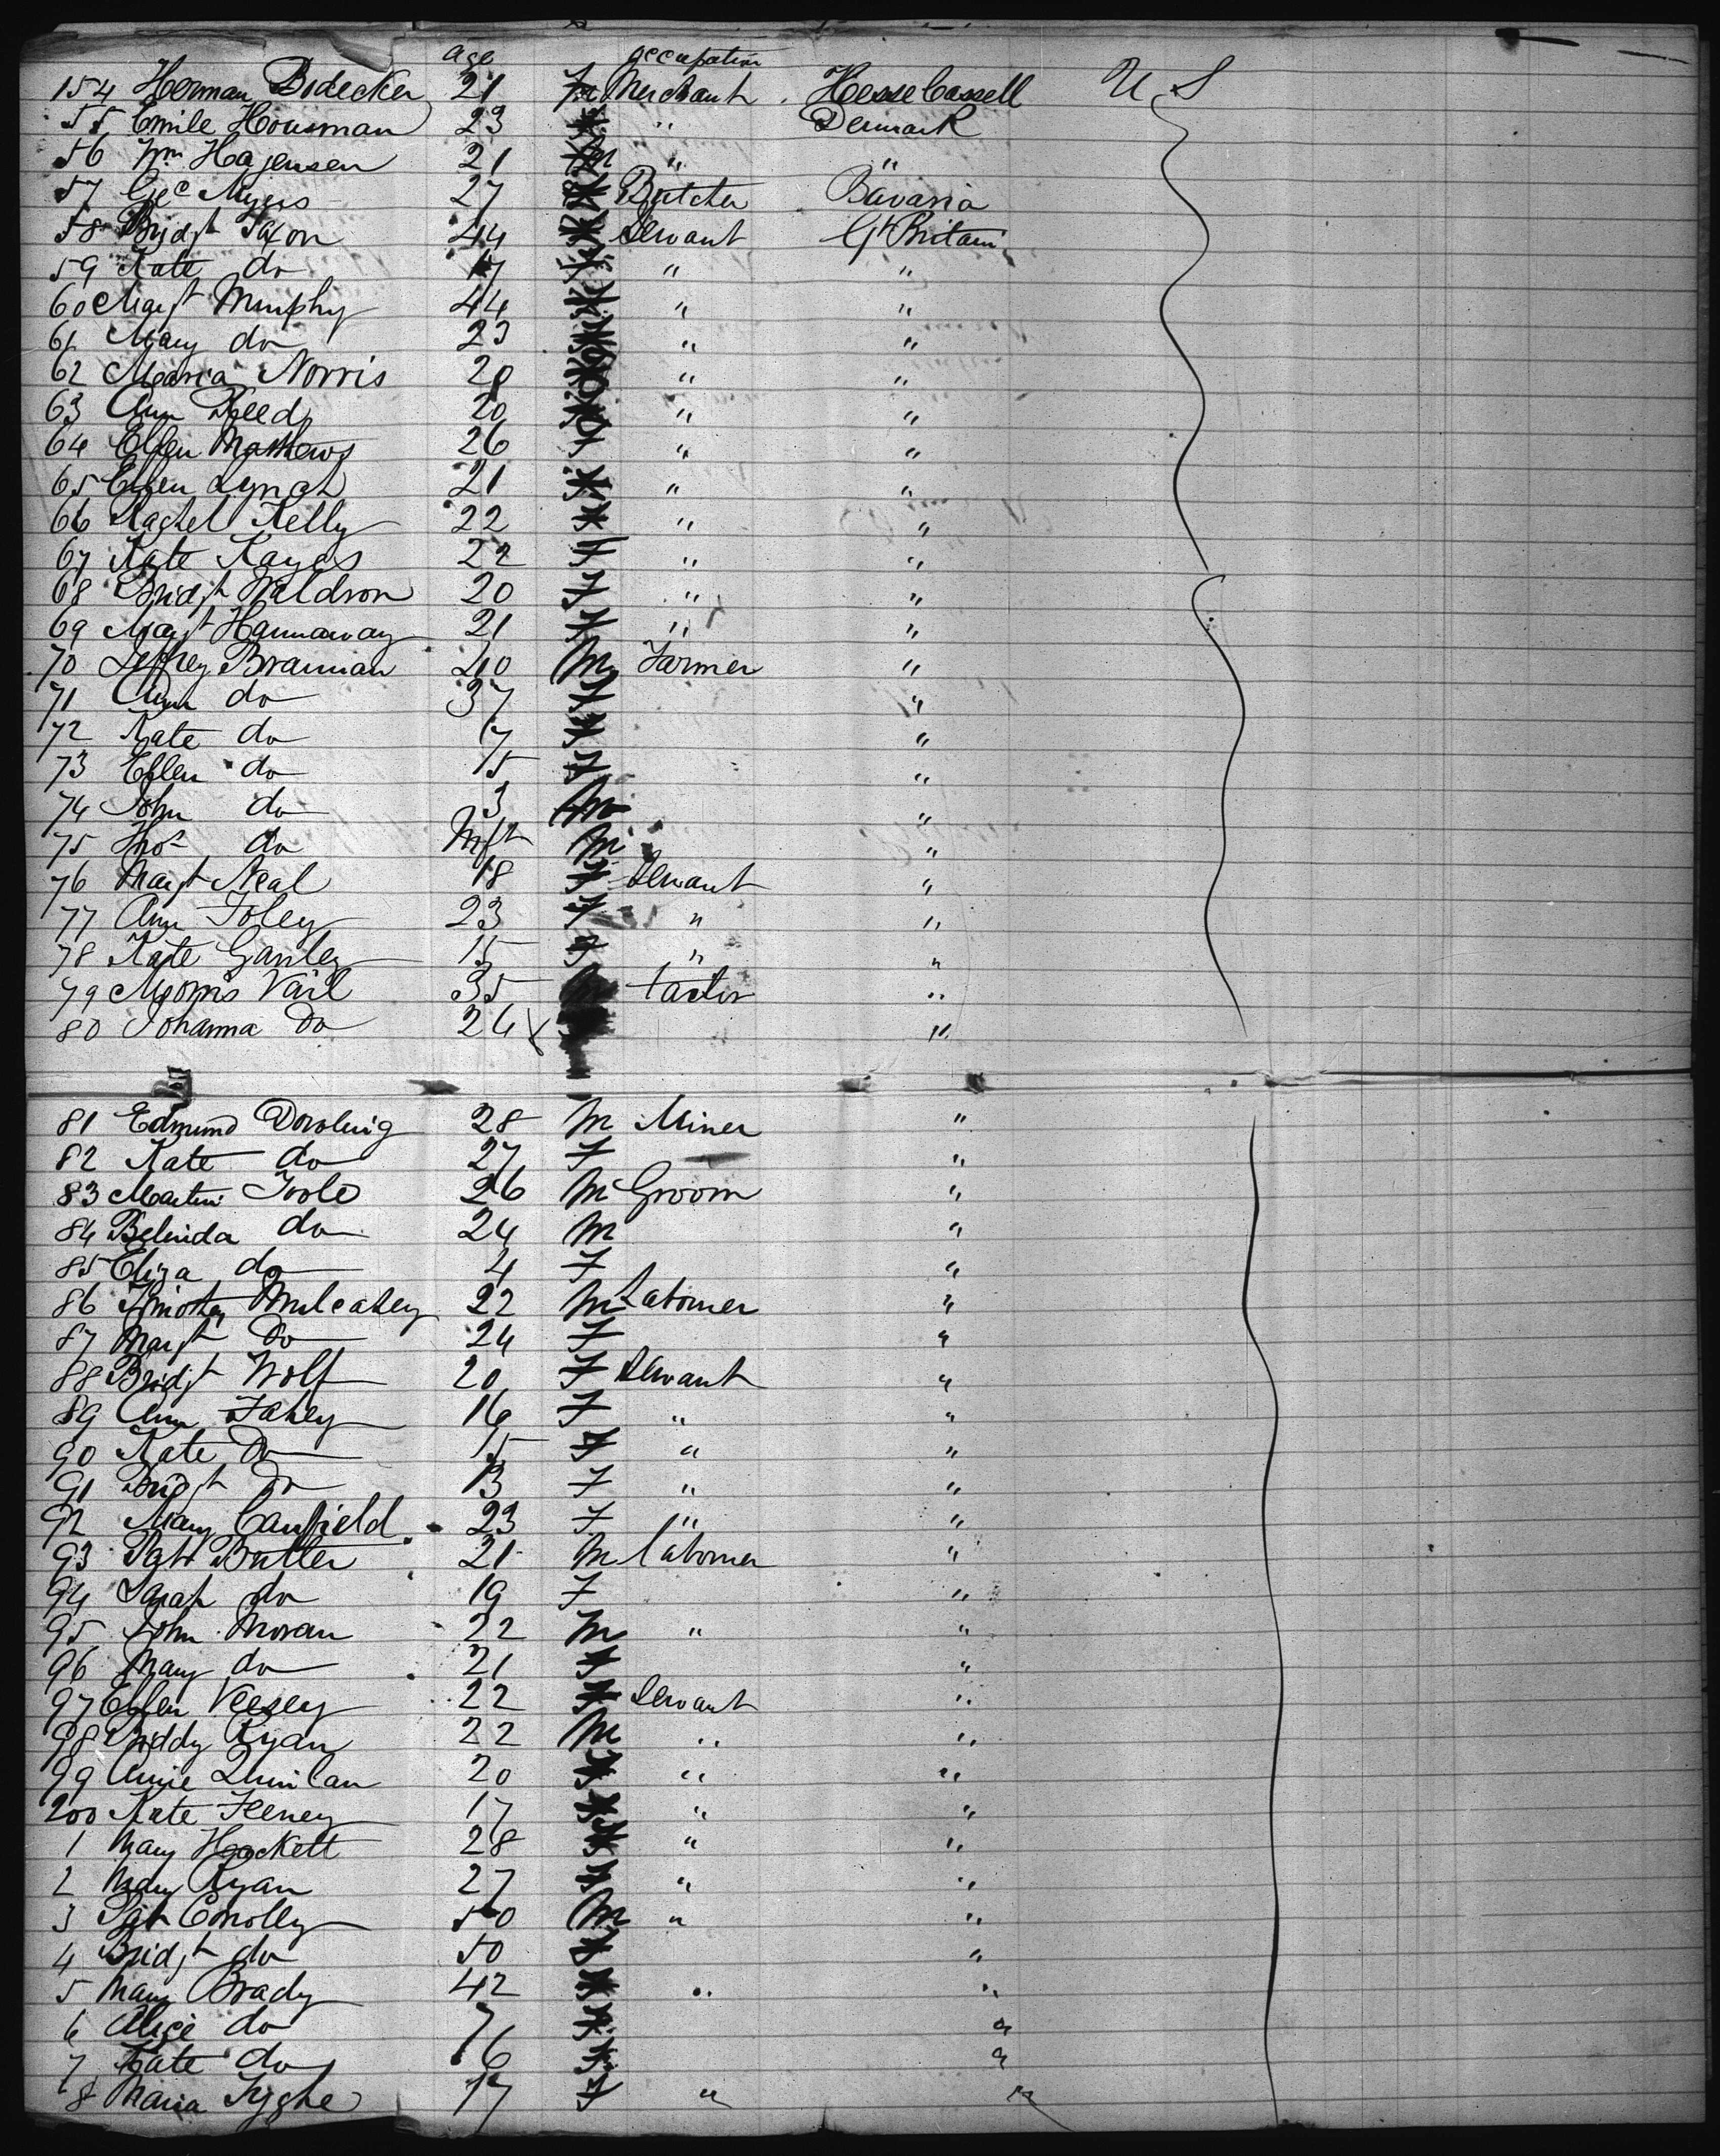 age occupation
154 Herman Bodecker 21 Merchant Hesse Cassell U S
55 Emile Housman 23 " Denmark
56 Wm Hagensen 21 M " "
57 Geo Myers 27 Butcher Bavaria
58 Bridgt Saxon 44 Servant Gt Britain
59 Kate do 17 " "
60 Margt Murphy 44 " "
61 Mary do 23 " "
62 Maria Norris 20 " "
63 Ann Reed 20 " "
64 Ellen Mathews 26 " "
65 Ellen Lynch 21 " "
66 Rachel Kelly 22 " "
67 Kate Kayes 22 F " "
68 Bridgt Waldron 20 F " "
69 Margt Hannaway 21 " "
70 Jeffrey Brannan 40 M Farmer "
71 Ann do 37 "
72 Kate do 17 "
73 Ellen do 15 F "
74 John do 3 M "
75 Thos do Inft M "
76 Margt Neal 18 F Servant "
77 Ann Foley 23 F " "
78 Kate Ganley 15 F " "
79 Morris Vail 35 "
80 Johanna Do 24 "
81 Edmund Dowling 28 M Miner "
82 Kate do 27 F "
83 Martin Toole 26 M Groom "
84 Belinda do 24 M "
85 Eliza do 4 F "
86 Timothy Mulcahey 22 M Labourer "
87 Margt Do 24 F "
88 Bridgt Wolf 20 F Servant "
89 Ann Fahey 16 F " "
90 Kate Do 15 F " "
91 Bridgt Do 13 F " "
92 Mary Canfield 23 F " "
93 Patt Butler 21 M Labourer "
94 Sarah do 19 F "
95 John Moran 22 M " "
96 Mary do 21 "
97 Ellen Veesey 22 F Servant "
98 Ryan 22 M " "
99 Annie Quinlan 20 " "
200 Kate Feeney 17 " "
1 Mary Hackett 28 " "
2 Mary Ryan 27 " "
3 Pat Conolly 50 M " "
4 Bridgt do 50 "
5 Mary Brady 42 " "
6 Alice do 7 "
7 Kate do 6 "
8 Maria Tyghe 17 F " "